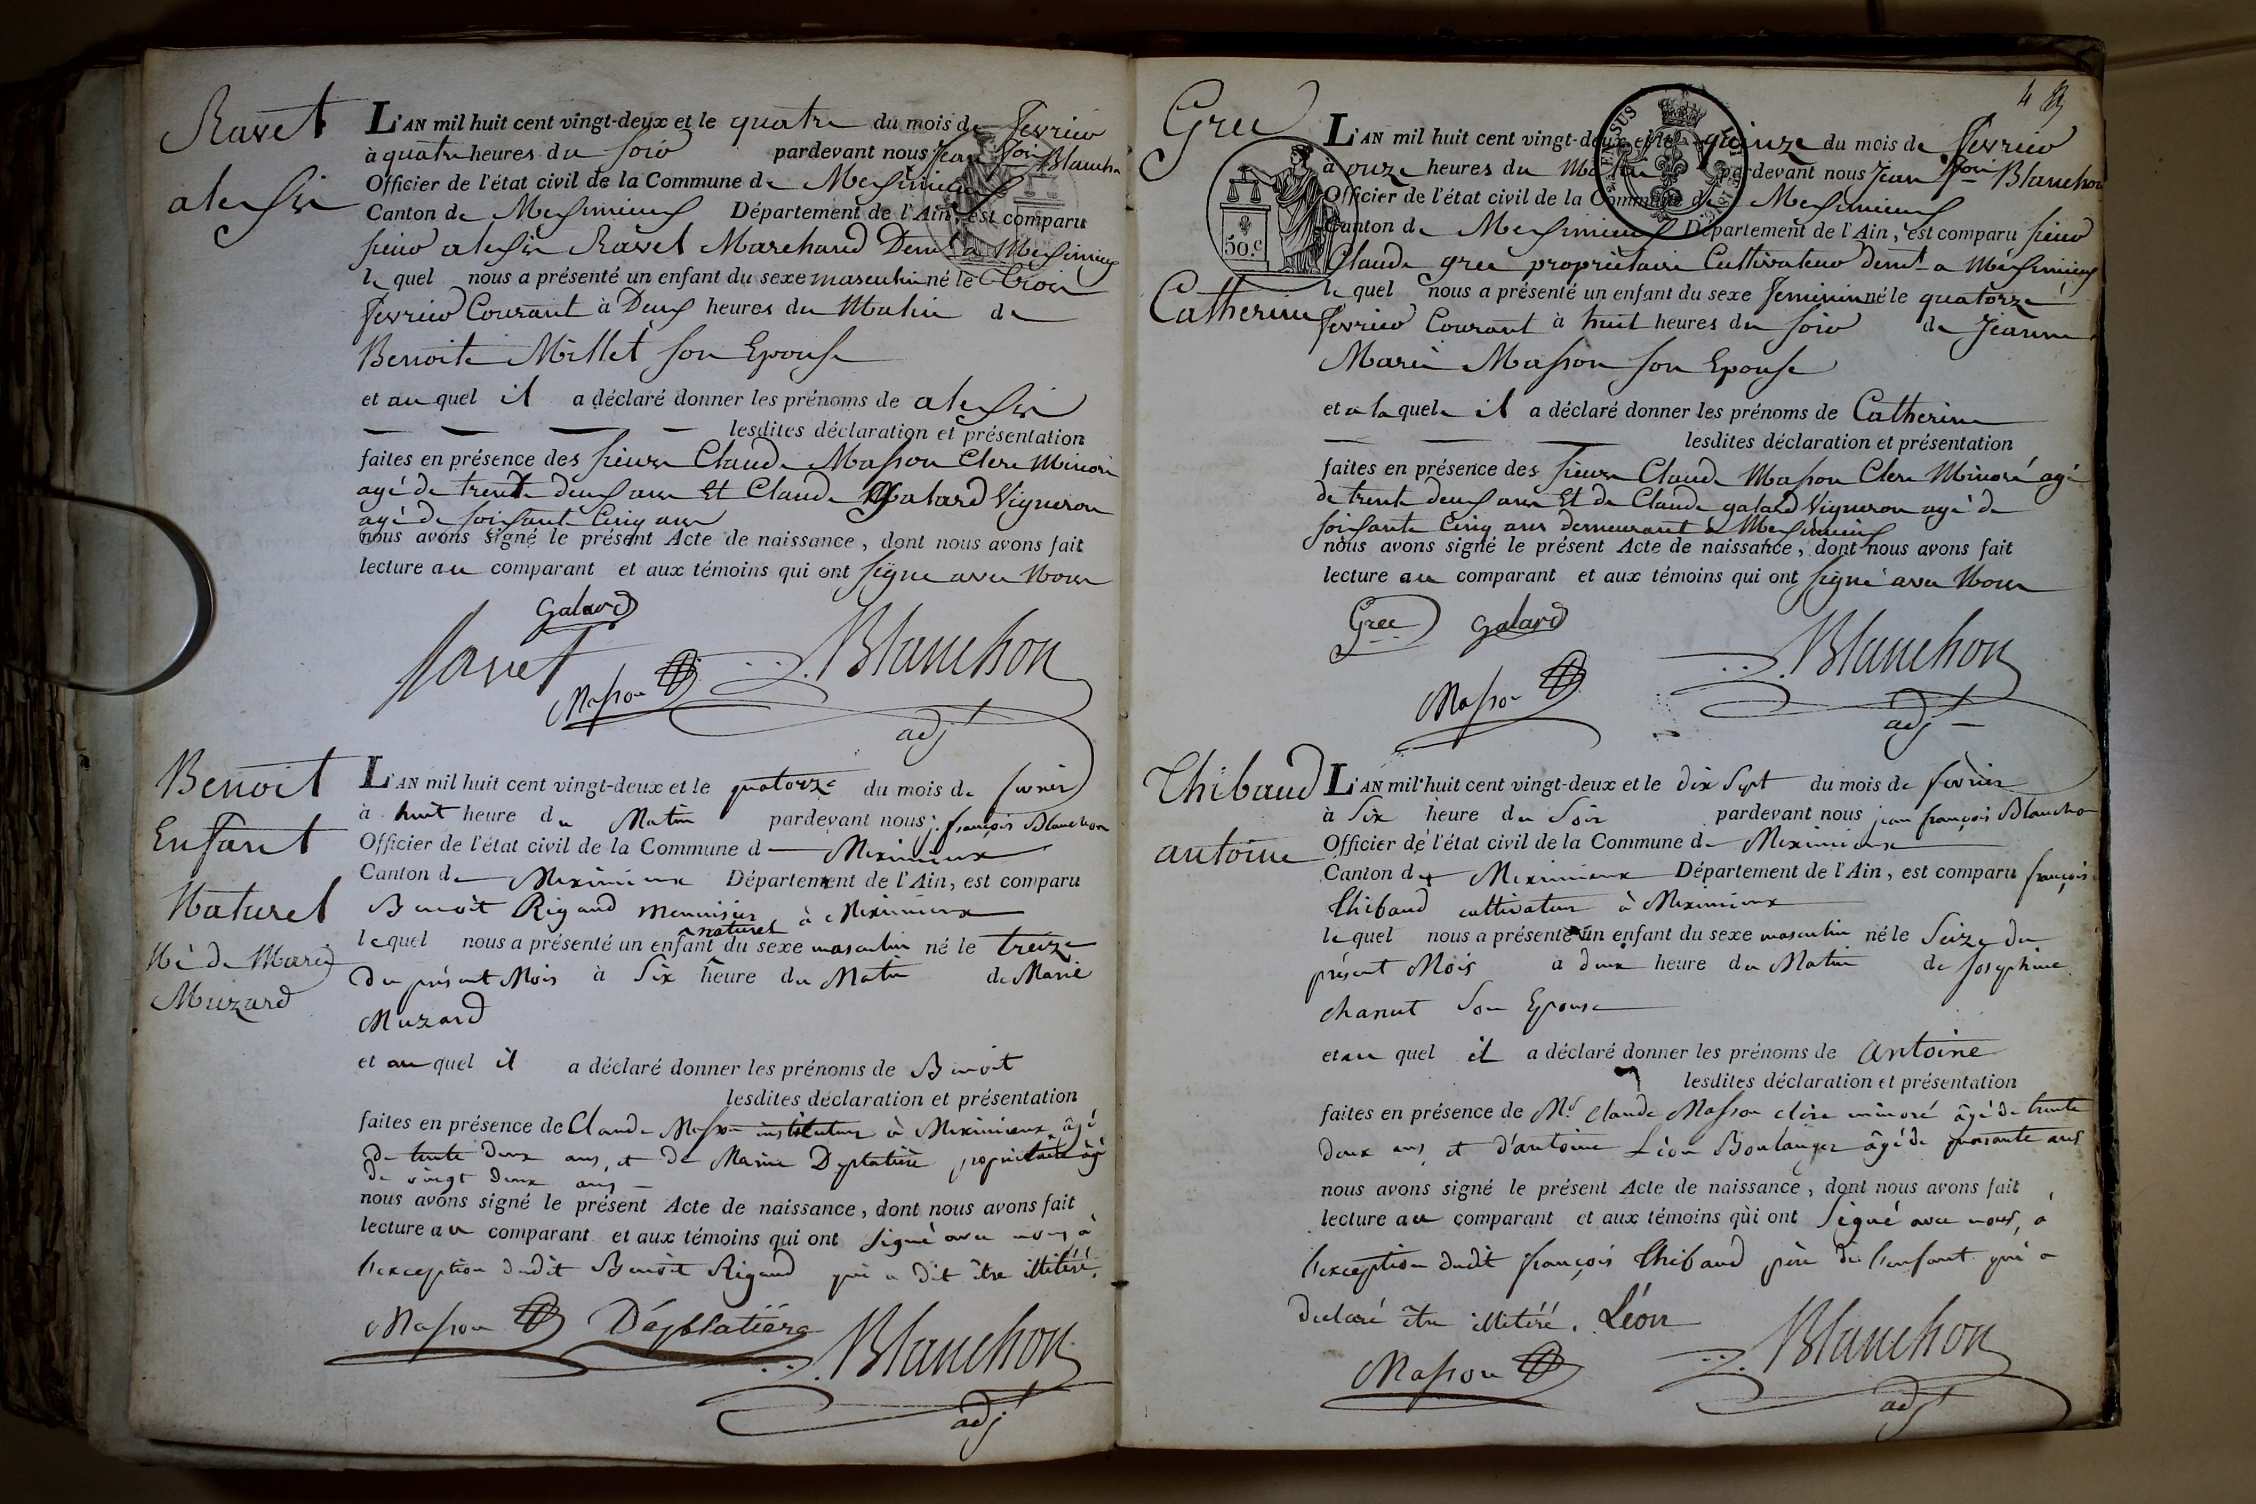 Ravet
alexis
L'AN mil huit cent vingt-deux et le quatre du mois de fevrier
à quatre heures du soir pardevant nous Jean Fois Blanchon
Officier de l'état civil de la Commune de Meximieux
Canton de Meximieux Département de l'Ain, est comparu
sieur alexis Ravet Marchand Demt a Meximieux
lequel nous a présenté un enfant du sexe masculin né le trois
fevrier Courant à Deux heures du Matin de
Benoite Millet son Epouse
et au quel il a déclaré donner les prénoms de alexis
lesdites déclaration et présentation
faites en présence des sieurs Claude Masson Clerc Minoré
agé de trente deux ans Et Claude Galard Vigneron
agé de soixante Cinq ans
nous avons signé le présent Acte de naissance, dont nous avons fait
lecture au comparant et aux témoins qui ont signé avec Nous
Galard
ravet
Masson
Blanchon
adjt
Benoit
Enfant
Naturel
Né de Marie
Muzard
L'AN mil huit cent vingt-deux et le quatorze du mois de fevrier
à huit heure du Matin pardevant nous j. françois Blanchon
Officier de l'état civil de la Commune d Meximieux
Canton de Meximieux Département de l'Ain, est comparu
Benoit Rigaud menuisier, à Meximieux
naturel
lequel nous a présenté un enfant du sexe masculin né le treize
Du présent Mois à Six heure du Matin de Marie
Muzard
et au quel il a déclaré donner les prénoms de Benoit
lesdites déclaration et présentation
faites en présence de Claude Masson instituteur à Meximieux, âgé
de trente deux ans, et de Marin Deplatière propriétaire âgé
de vingt deux ans
nous avons signé le présent Acte de naissance, dont nous avons fait
lecture au comparant et aux témoins qui ont signé avec nous, à
l'exception dudit Benoit Rigaud qui a dit être illitéré.
Masson Déplatière
Blanchon
adjt
4
Gree
Catherine
L'AN mil huit cent vingt-deux et le quinze du mois de fevrier
à onze heures du Matin pardevant nous Jean fois Blanchon
Officier de l'état civil de la Commune de Meximieux
50.c
Canton de Meximieux Département de l'Ain, est comparu sieur
Claude gree propriètaire Cultivateur demt a Meximieux
lequel nous a présenté un enfant du sexe feminin né le quatorze
fevrier Courant à huit heures du soir de Jeanne
Marie Masson son Epouse
et a laquele il a déclaré donner les prénoms de Catherine
lesdites déclaration et présentation
faites en présence des sieurs Claude Masson Clerc Minoré agé
de trente deux ans Et de Claude galard Vigneron agé de
soixante Cinq ans demeurant a Meximieux
nous avons signé le présent Acte de naissance, dont nous avons fait
lecture au comparant et aux témoins qui ont signé avec Nous
Gree Galard
Masson
Blanchon
adjt
Thibaud
antoine
L'AN mil huit cent vingt-deux et le dix sept du mois de fevrier
à Six heure du Soir pardevant nous jean françois Blanchon
Officier de l'état civil de la Commune de Meximieux
Canton de Meximieux Département de l'Ain, est comparu françois
Thibaud cultivateur à Meximieux
lequel nous a présenté un enfant du sexe masculin né le Seize du
présent Mois à deux heure du Matin de Josephine
chanut Son Epouse
et au quel il a déclaré donner les prénoms de antoine
lesdites déclaration et présentation
faites en présence de Mr claude Masson clerc minoré âgé de trente
deux ans, et d'antoine Léon Boulanger âgé de quarante ans
nous avons signé le présent Acte de naissance, dont nous avons fait
lecture au comparant et aux témoins qui ont Signé avec nous, à
l'exception dudit françois Thibaud père de l'enfant qui a
declaré être illitéré. Léon
Masson
Blanchon
adjt